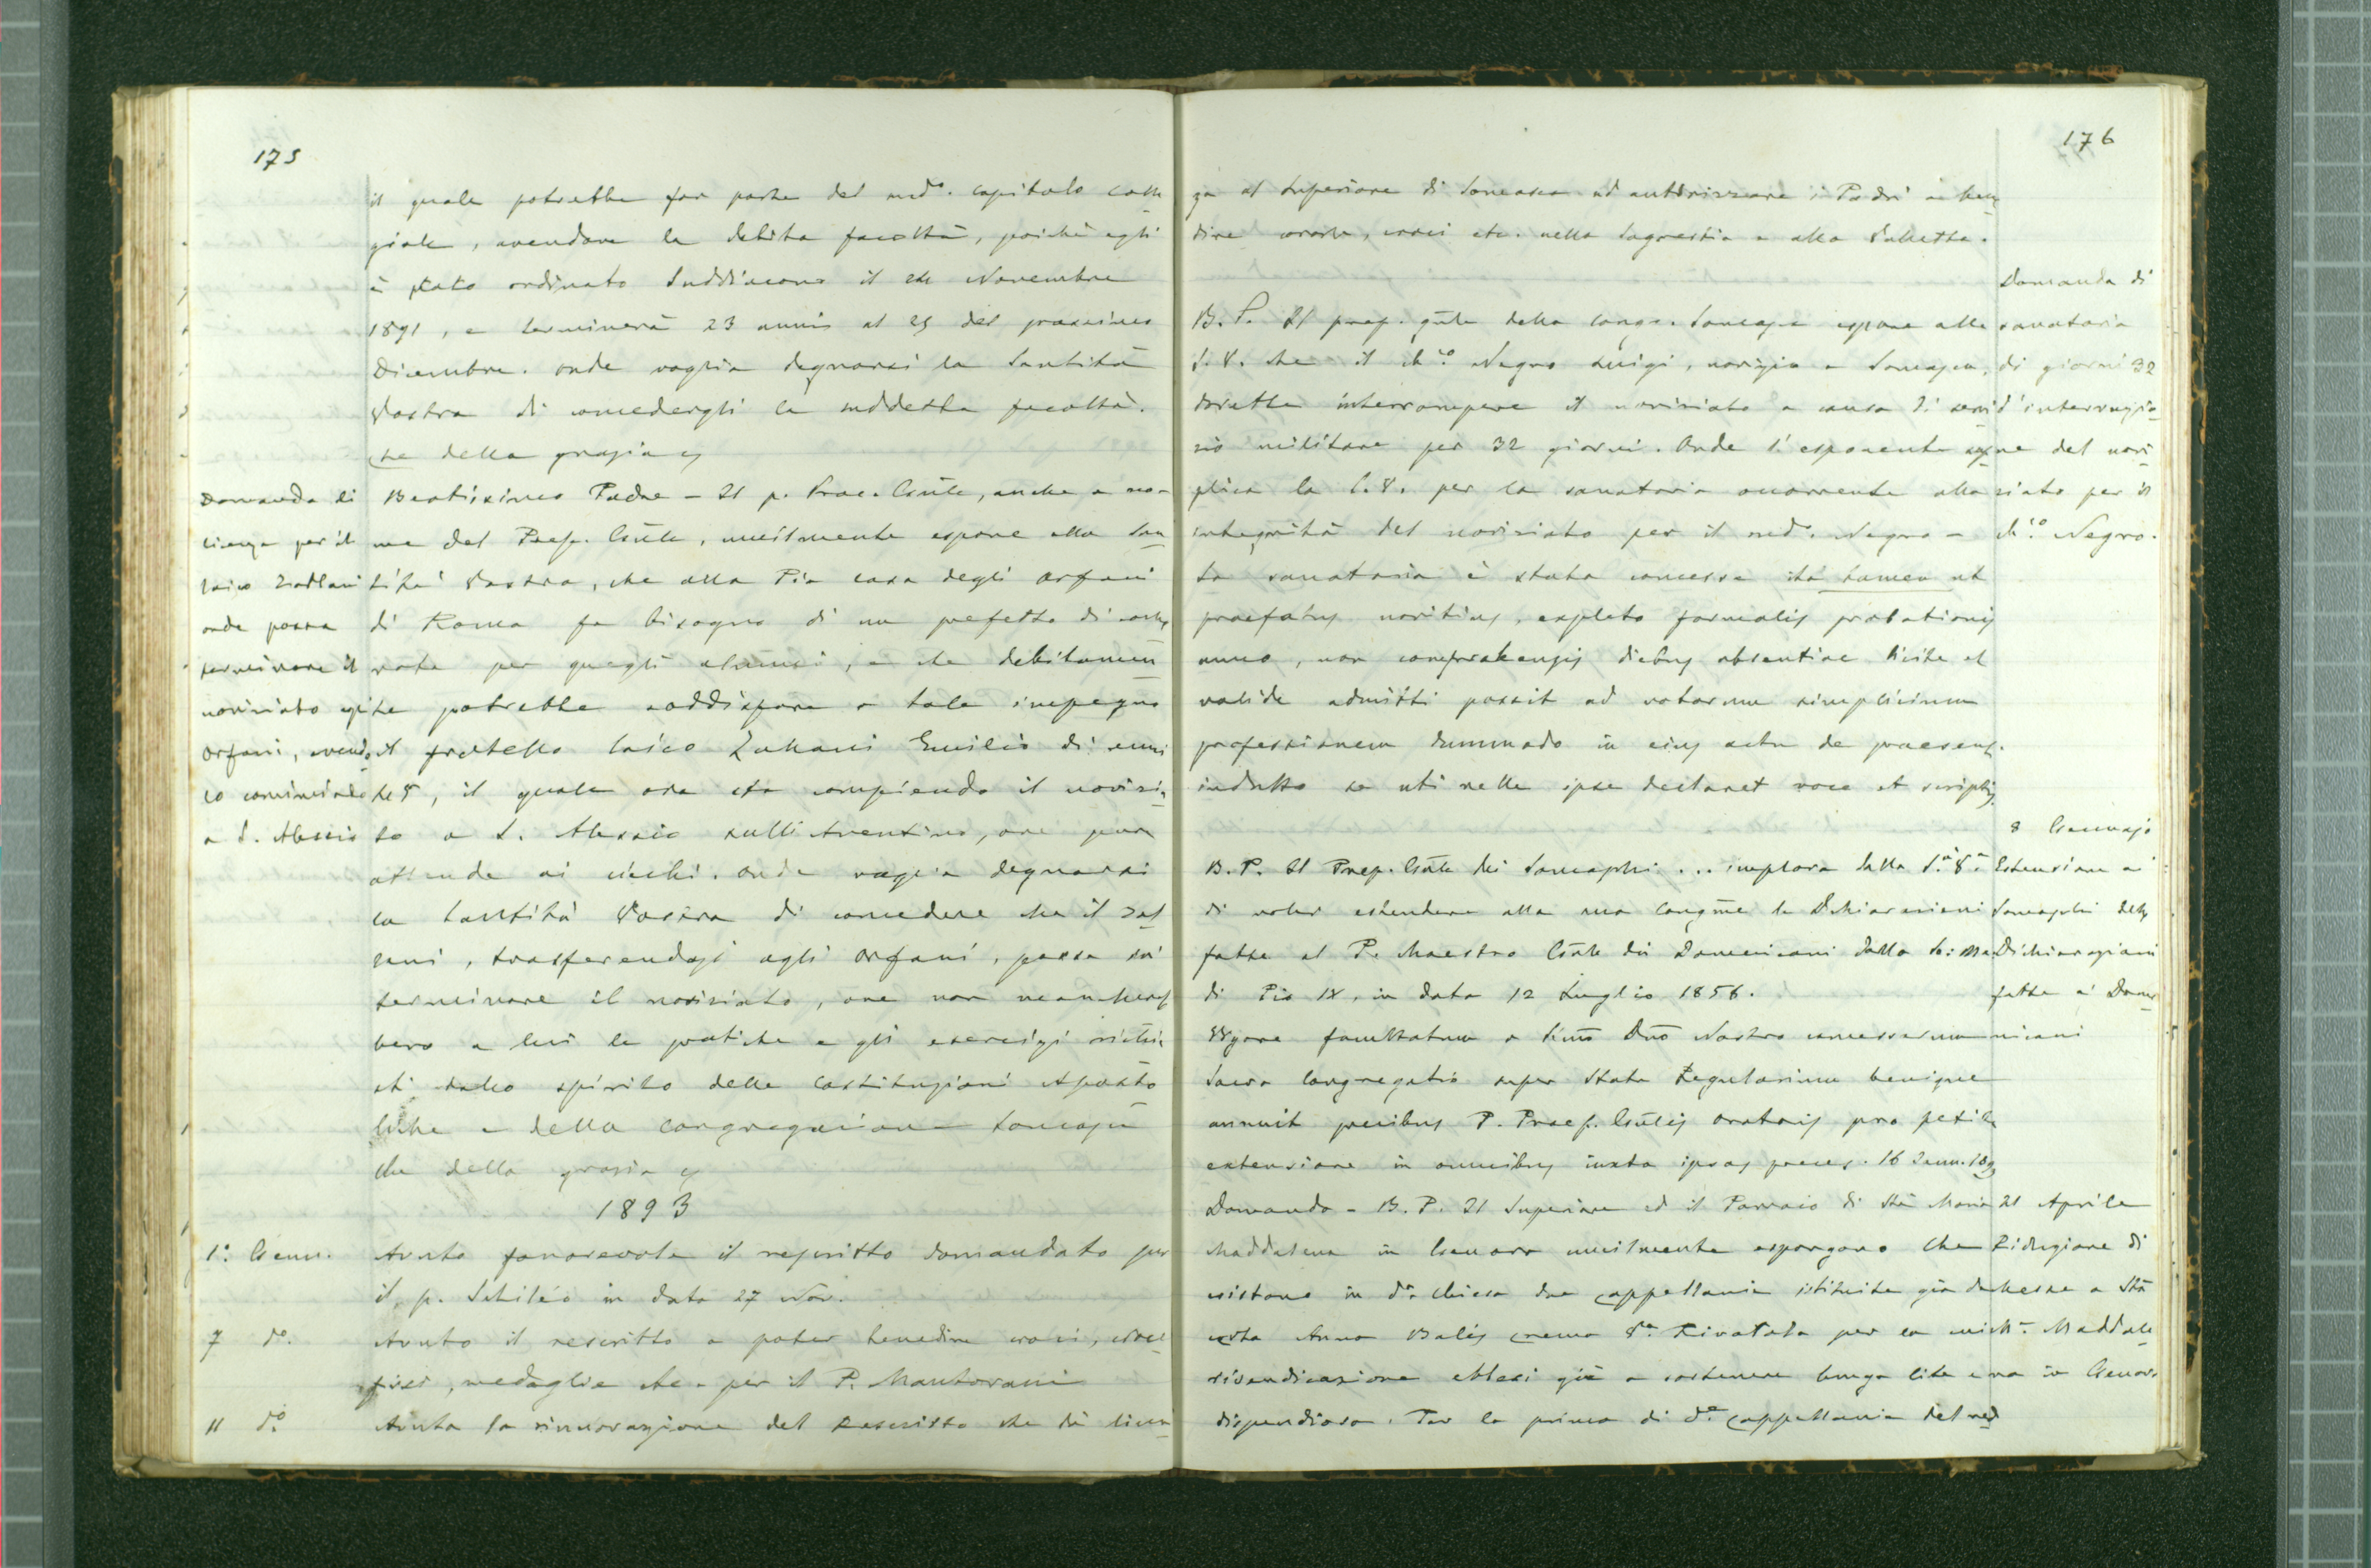 175
il quale potrebbe far parte del medº. capitolo colle
giale, avendone la debita facoltà, poichè egli
è stato ordinato Suddiacono il Novembre
1891, e terminerà 23 annis al 25 del prossimo
Dicembre. Onde voglia degnarsi la Santità
Vostra di concedergli la suddetta facoltà.
Che della grazia
Domanda di
licenza per il
laico
onde possa
terminare il
noviziato agli
Orfani, avendo
lo cominciato
a S. Alessio
Beatissimo Padre - Il p. Proc. Gñle, anche a no-
me del Prep. Gñle, umilmente espone alla San
tità Vostra, che alla Pia casa degli Orfani
di Roma fa bisogno di un prefetto di
rata per quegli alunni, e che debitamen
te potrebbe soddisfare a tale impegno
il fratello laico Emilio di anni
, il quale ora sta compiendo il novizi
to a S. Alessio sull'Aventino, ove pure
attende ai ciechi. Onde voglia degnarsi
la Santità Vostra di concedere che il
, trasferendosi agli Orfani, possa ivi
terminare il noviziato, ove non manchereb
bero a lui le pratiche e gli esercizi richie
sti dallo spirito delle Costituzioni Aposto
liche e della Congregazione Somasca
che della grazia
1893
1º. Genn. Avuto favorevole il rescritto domandato per
il p. in data 27 Nov.
7 dº. Avuto il rescritto a poter benedire croci, croce
fissi, medaglie etc. per il P. Mantovani
11 dº Avuta la rinnovazione del Rescritto che dà licen
176
za al Superiore di Somasca ad autorizzare i Padri a bene
dire corone, croci etc. nella Sagrestia e alla Valletta.
Domanda di
sanatoria
di giorni 32
d'interruzio
ne del novi
ziato per il
ch.º Negro.
B. P. Il prep. gñle della Congr. Somasca espone alla
S. V. che il ch.º Negro Luigi, novizio a Somasca,
dovette interrompere il noviziato a causa di servi
zio militare per 32 giorni. Onde l'esponente sup
plica la S. V. per la sanatoria occorrente alla
integrità del noviziato per il medº. Negro -
La sanatoria è stata concessa ità tamen ut
praefatus novitius, expleto formalis probationis
anno, non comprehensis diebus absentiae licite et
valide admitti possit ad votorum simplicium
professionem dummodo in eius actu de praesens.
indulto se uti velle ipse declaret voce et scriptis.
8 Gennajo
Estensione ai
Somaschi delle
Dichiarazioni
fatte ai Dome
nicani
B. P. Il Prep. Gñle dei Somaschi ... implora dalla S.ª V.ª
di voler estendere alla sua Congne le Dichiarazioni
fatte al P. Maestro Gñle dei Domenicani dalla S: Me.
di Pio IX, in data 12 Luglio 1856.
Vigore facultatum a Smo Dño Nostro concessarum
Sacra Congregatio super Statu Regularium benigne
annuit precibus P. Praep. Gñlis Oratoris pro petita
extensione in omnibus iuxta ipsas preces. 16 Jann. 1893
21 Aprile
Riduzione di
Messe a Stª
Mª. Maddale
na in Genova
Domanda - B. P. Il Superiore ed il Parroco di Stª Maria
Maddalena in Genova umilmente espongono che
esistono in dª. Chiesa due cappellanie istituite già da
certa Anna per la cui
rivendicazione ebbesi già a sostenere lunga lite e
dispendiosa. Per la prima di dª. Cappellania del red